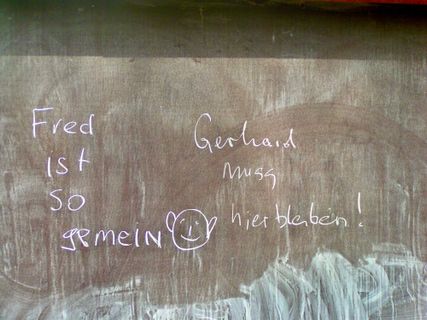 Fred
ist
so
gemeiN
Gerhard
muss
hierbleiben!